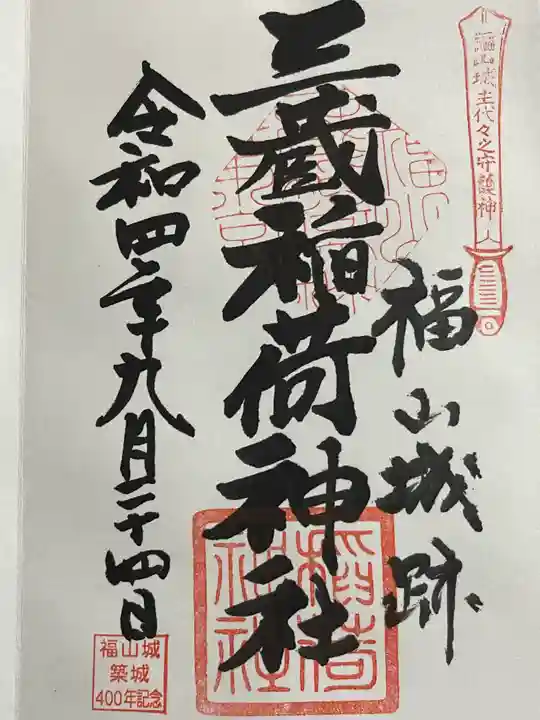 福山城主代々之守護神
福山城跡
三蔵稲荷神社
稲荷
神社
令和四年九月二十四日
福山城
築城
400年記念